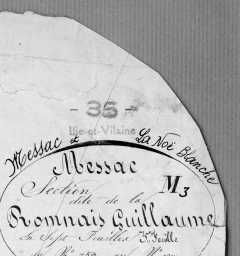 - 35 -
Ille-et-Vilaine
Messac et La Noë Blanche
Messac
M3
Section
dite de la
Romnais Guillaume
En Sept Feuilles 3e Feuille